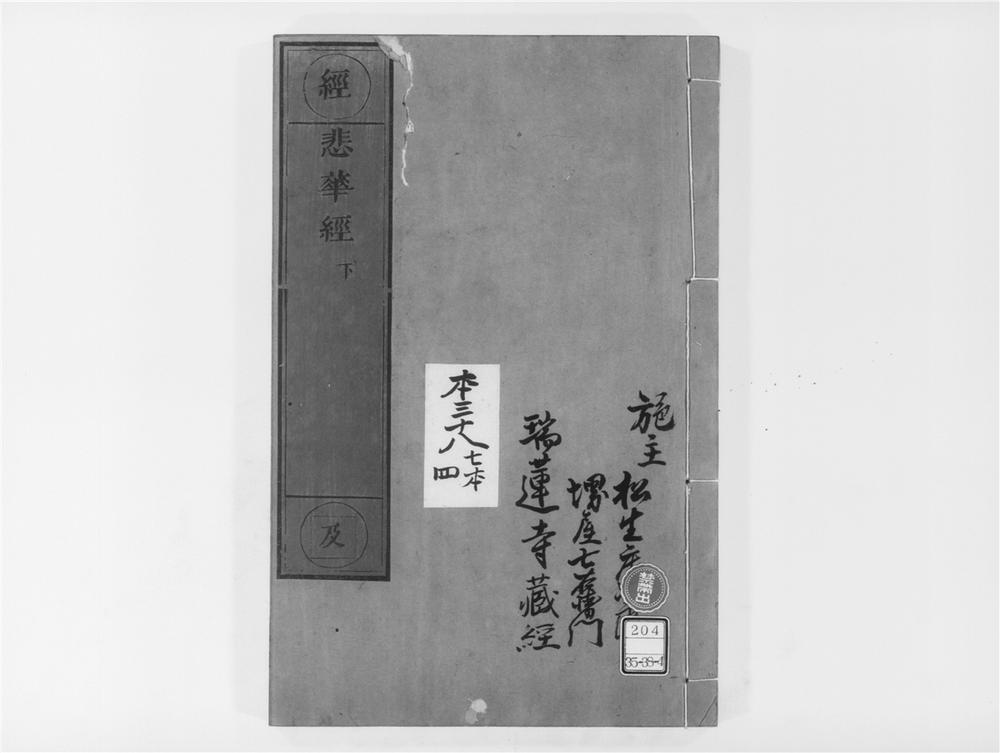 經
悲華經
下
及
本三十八
七本
四
施主
松生
堺屋七右衛門
瑞蓮寺藏經
禁帶出
204
35-38-4